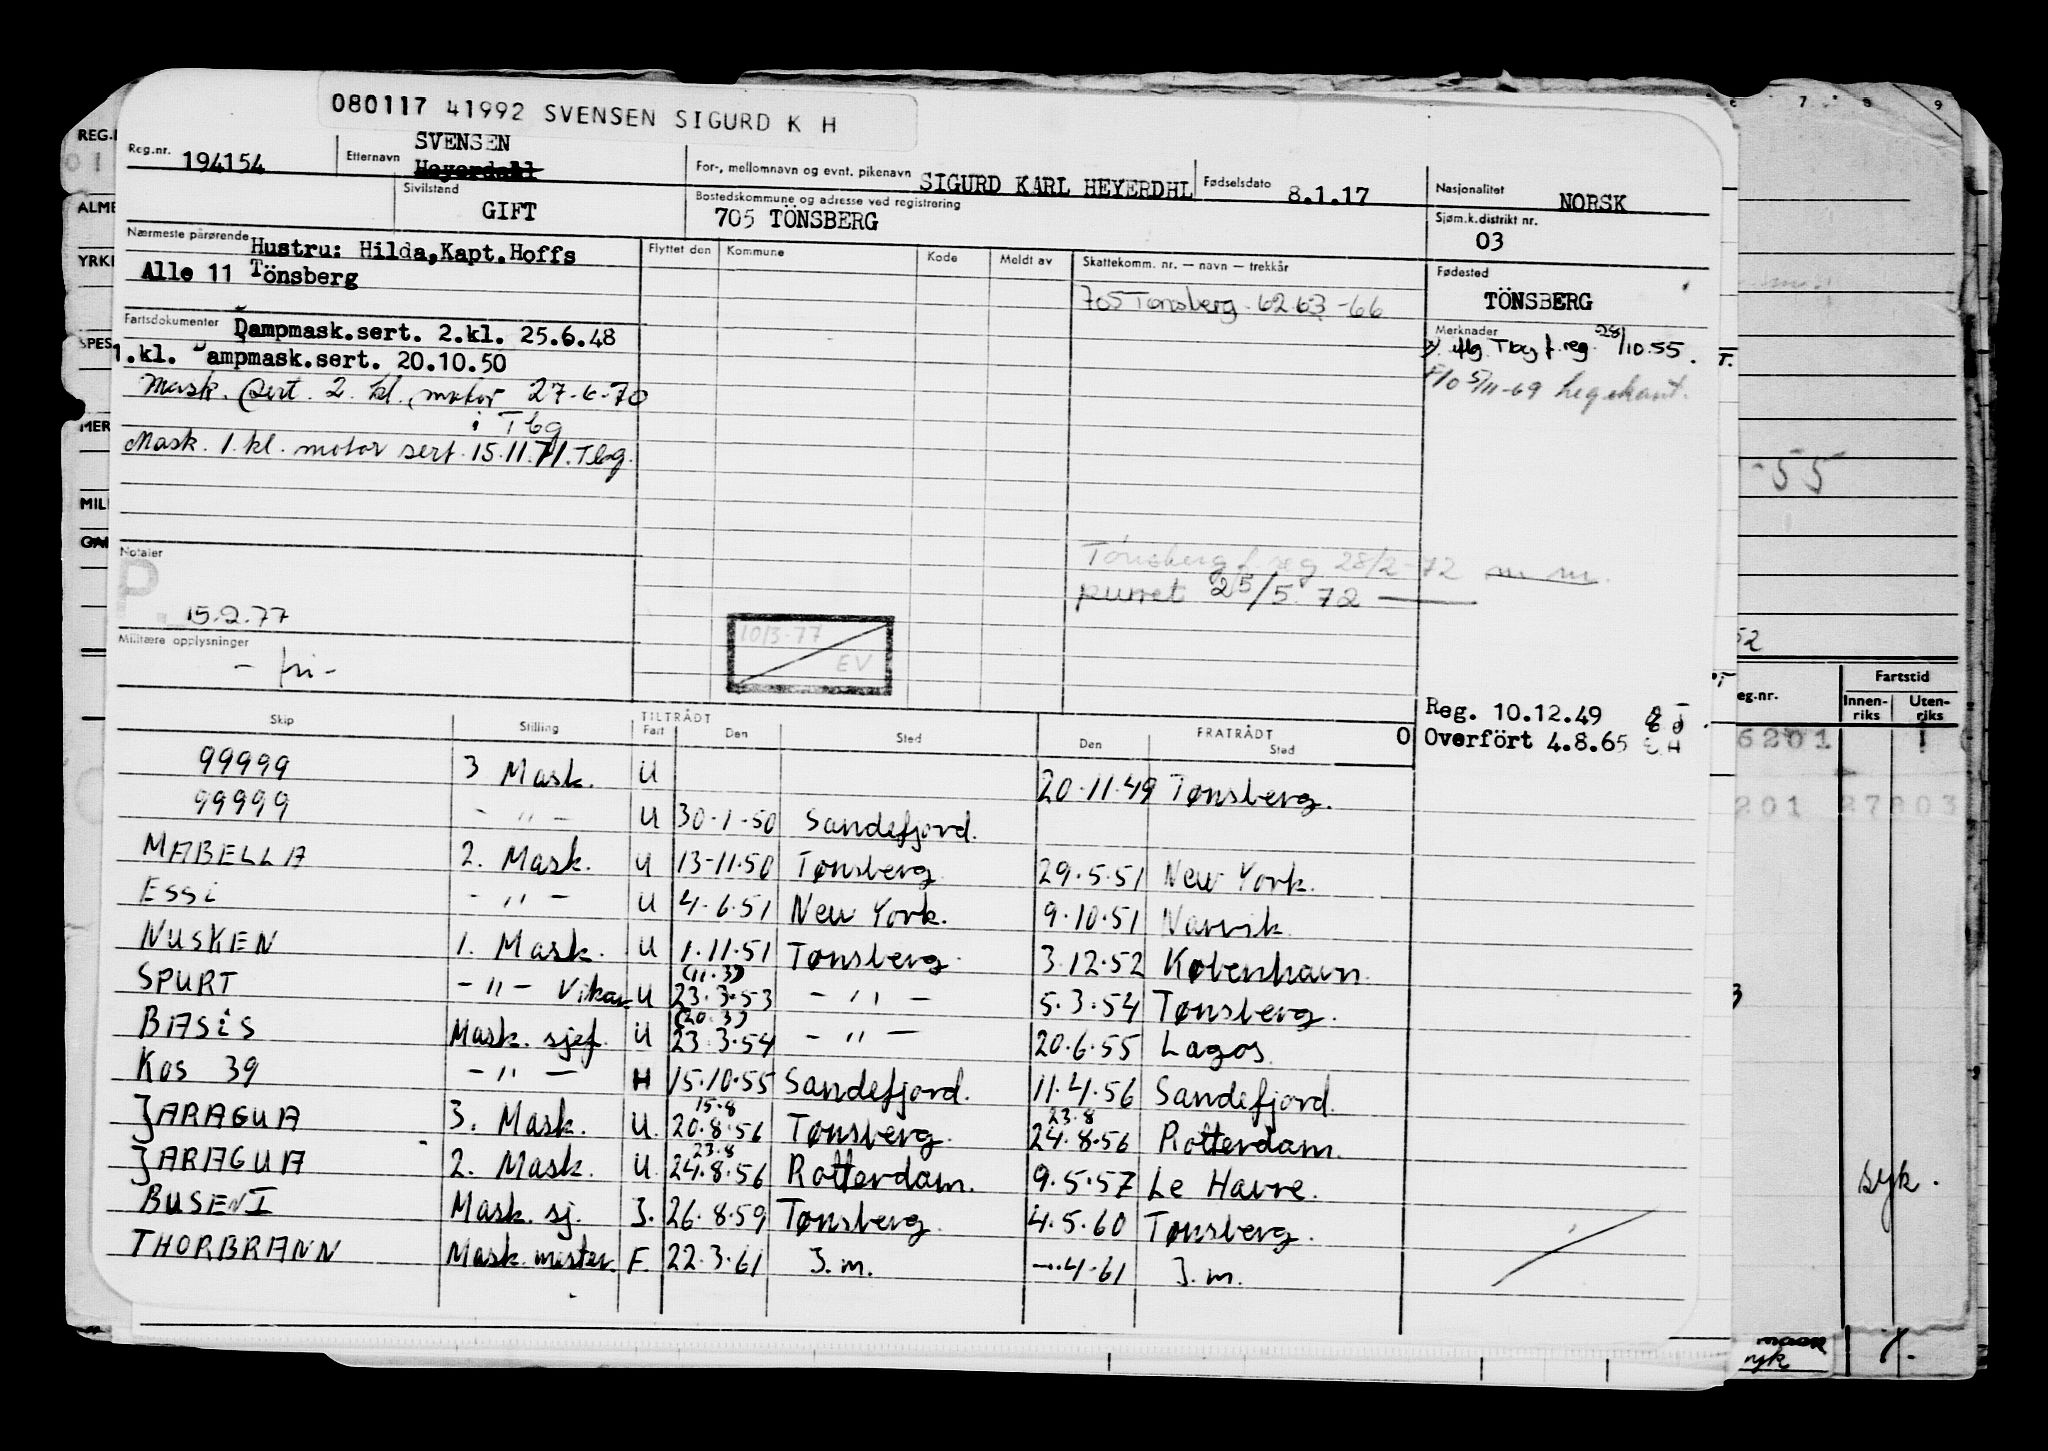 080117 41992 SVENSEN SIGURD K H
Reg.nr. 194154 Etternavn SVENSEN Heyerdahl For-, mellomnavn og evnt. pikenavn SIGURD KARL HEYERDHL Fødselsdato 8.1.17 Nasjonalitet NORSK
Sivilstand GIFT Bostedskommune og adresse ved registrering 705 TÖNSBERG Sjøm.k.distrikt nr. 03
Nærmeste pårørende Hustru: Hilda,Kapt.Hoffs
Alle 11 Tönsberg
Flyttet den Kommune Kode Meldt av Skattekomm. nr. — navn — trekkår
705 Tønsberg. 62 63 -66
Fødested TÖNSBERG
Fartsdokumenter Dampmask.sert. 2.kl. 25.6.48
1.kl. Dampmask.sert. 20.10.50
Mask. sert. 2. kl. motor 27-6-70
i Tbg
Mask. 1. kl. motor sert. 15.11.71. Tbg.
Merknader
Tbg f. reg. 28/10.55.
5/11-69
Tönsberg f. reg 28/2-72
purret 25/5. 72
Notater
P
15.2.77
10/3-77
EV
Militære opplysninger
- fri -
Reg. 10.12.49
Overfört 4.8.65
Skip Stilling TILTRÅDT Fart Den Sted FRATRÅDT Den Sted 0
99999 3 Mask. U 20.11.49 Tønsberg.
99999 - " - U 30-1-50 Sandefjord.
MABELLA 2. Mask. U 13-11.50 Tønsberg 29.5.51 New York.
ESSi - " - U 4-6.51 New York. 9.10.51 Narvik.
NUSKEN 1. Mask. U 1.11.51 Tønsberg. 3.12.52 København.
SPURT - " - Vikar U (11.3) 23.3.53 - " - 5.3.54 Tønsberg.
BASiS Mask. sjef. U (20.3) 23.3.54 - " - 20.6.55 Lagos.
KOS 39 - " - H 15.10.55 Sandefjord. 11.4.56 Sandefjord.
JARAGUA 3. Mask. U. 15.8 20.8.56 Tønsberg. 23.8 24.8.56 Rotterdam.
JARAGUA 2. Mask. U 23.8 24.8.56 Rotterdam. 9.5.57 Le Havre.
BUSEN I Mask. sj. J. 26.8.59 Tønsberg. 4.5.60 Tønsberg.
THORBRANN Mask. mester. F. 22.3.61 J. m. -.4-61 J. m.
REG.
ALME
YRKE
SPES
MER
MILI
7 8 9
-55
52
eg.nr. Fartstid
Innen-riks Uten-riks
6201 1
201 27003
syk.
mask
syk